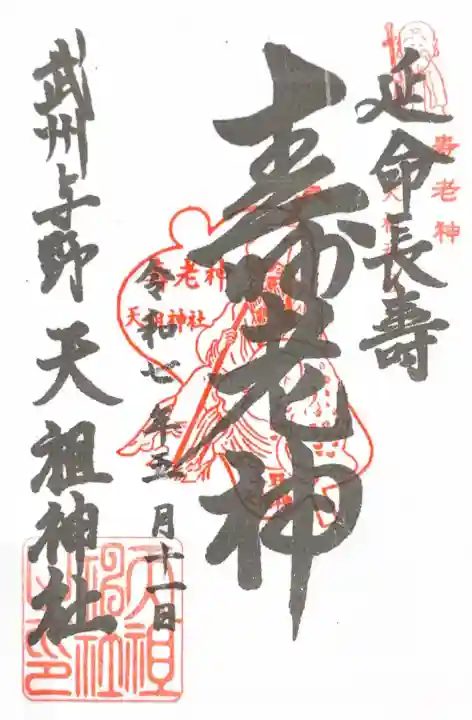 延命長壽
寿老神
寿老神
令和七年五月十一日
寿老神
天祖神社
武州与野 天祖神社
天祖神社之印